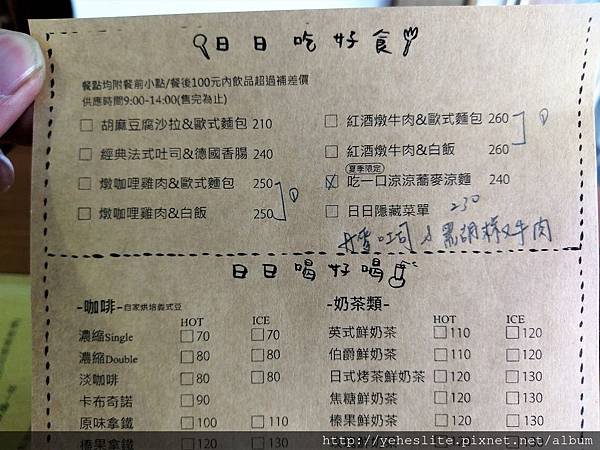 日日吃好食
餐點均附餐前小點/餐後100元內飲品超過補差價
供應時間9:00-14:00(售完為止)
胡麻豆腐沙拉&歐式麵包 210
經典法式吐司&德國香腸 240
燉咖哩雞肉&歐式麵包 250
燉咖哩雞肉&白飯 250
紅酒燉牛肉&歐式麵包 260
紅酒燉牛肉&白飯 260
夏季限定
吃一口涼涼蕎麥涼麵 240
日日隱藏菜單 230
吐司 黑胡椒牛肉
日日喝好喝
-咖啡- 自家烘培義式豆
HOT ICE
濃縮Single 70 70
濃縮Double 80 80
淡咖啡 80 80
卡布奇諾 90
原味拿鐵 100 110
榛果拿鐵 120 130
-奶茶類-
HOT ICE
英式鮮奶茶 110 120
伯爵鮮奶茶 110 120
日式烤茶鮮奶茶 120 130
焦糖鮮奶茶 120 130
榛果鮮奶茶 120 130
120 130
http://yeheslite.pixnet.net/album